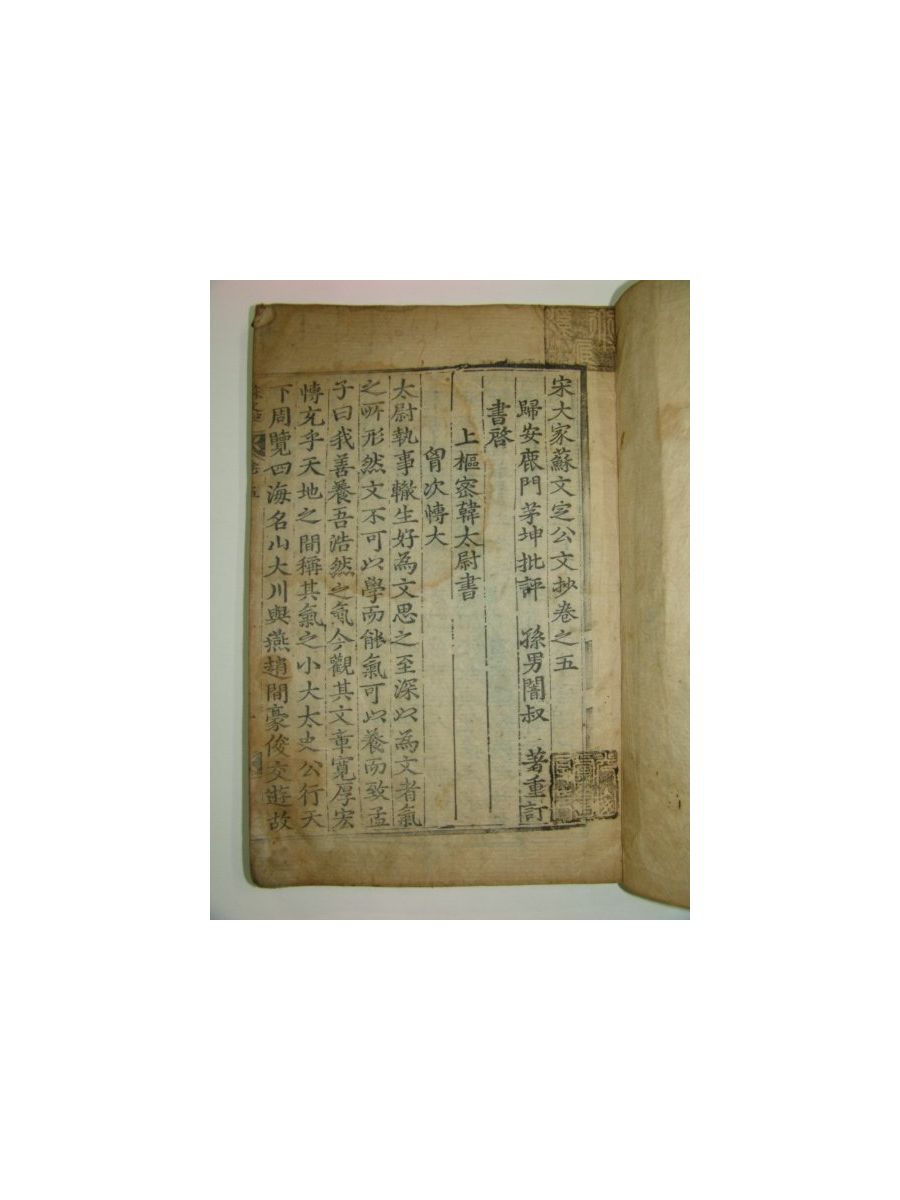 宋大家蘇文定公文抄卷之五
歸安鹿門茅坤批評　孫男闇叔　著重訂
書啓
上樞密韓太尉書
胷次慱大
太尉執事轍生好為文思之至深以為文者氣
之所形然文不可以學而能氣可以養而致孟
子曰我善養吾浩然之氣今觀其文章寬厚宏
慱充乎天地之間稱其氣之小大太史公行天
下周覽四海名山大川與燕趙間豪俊交遊故